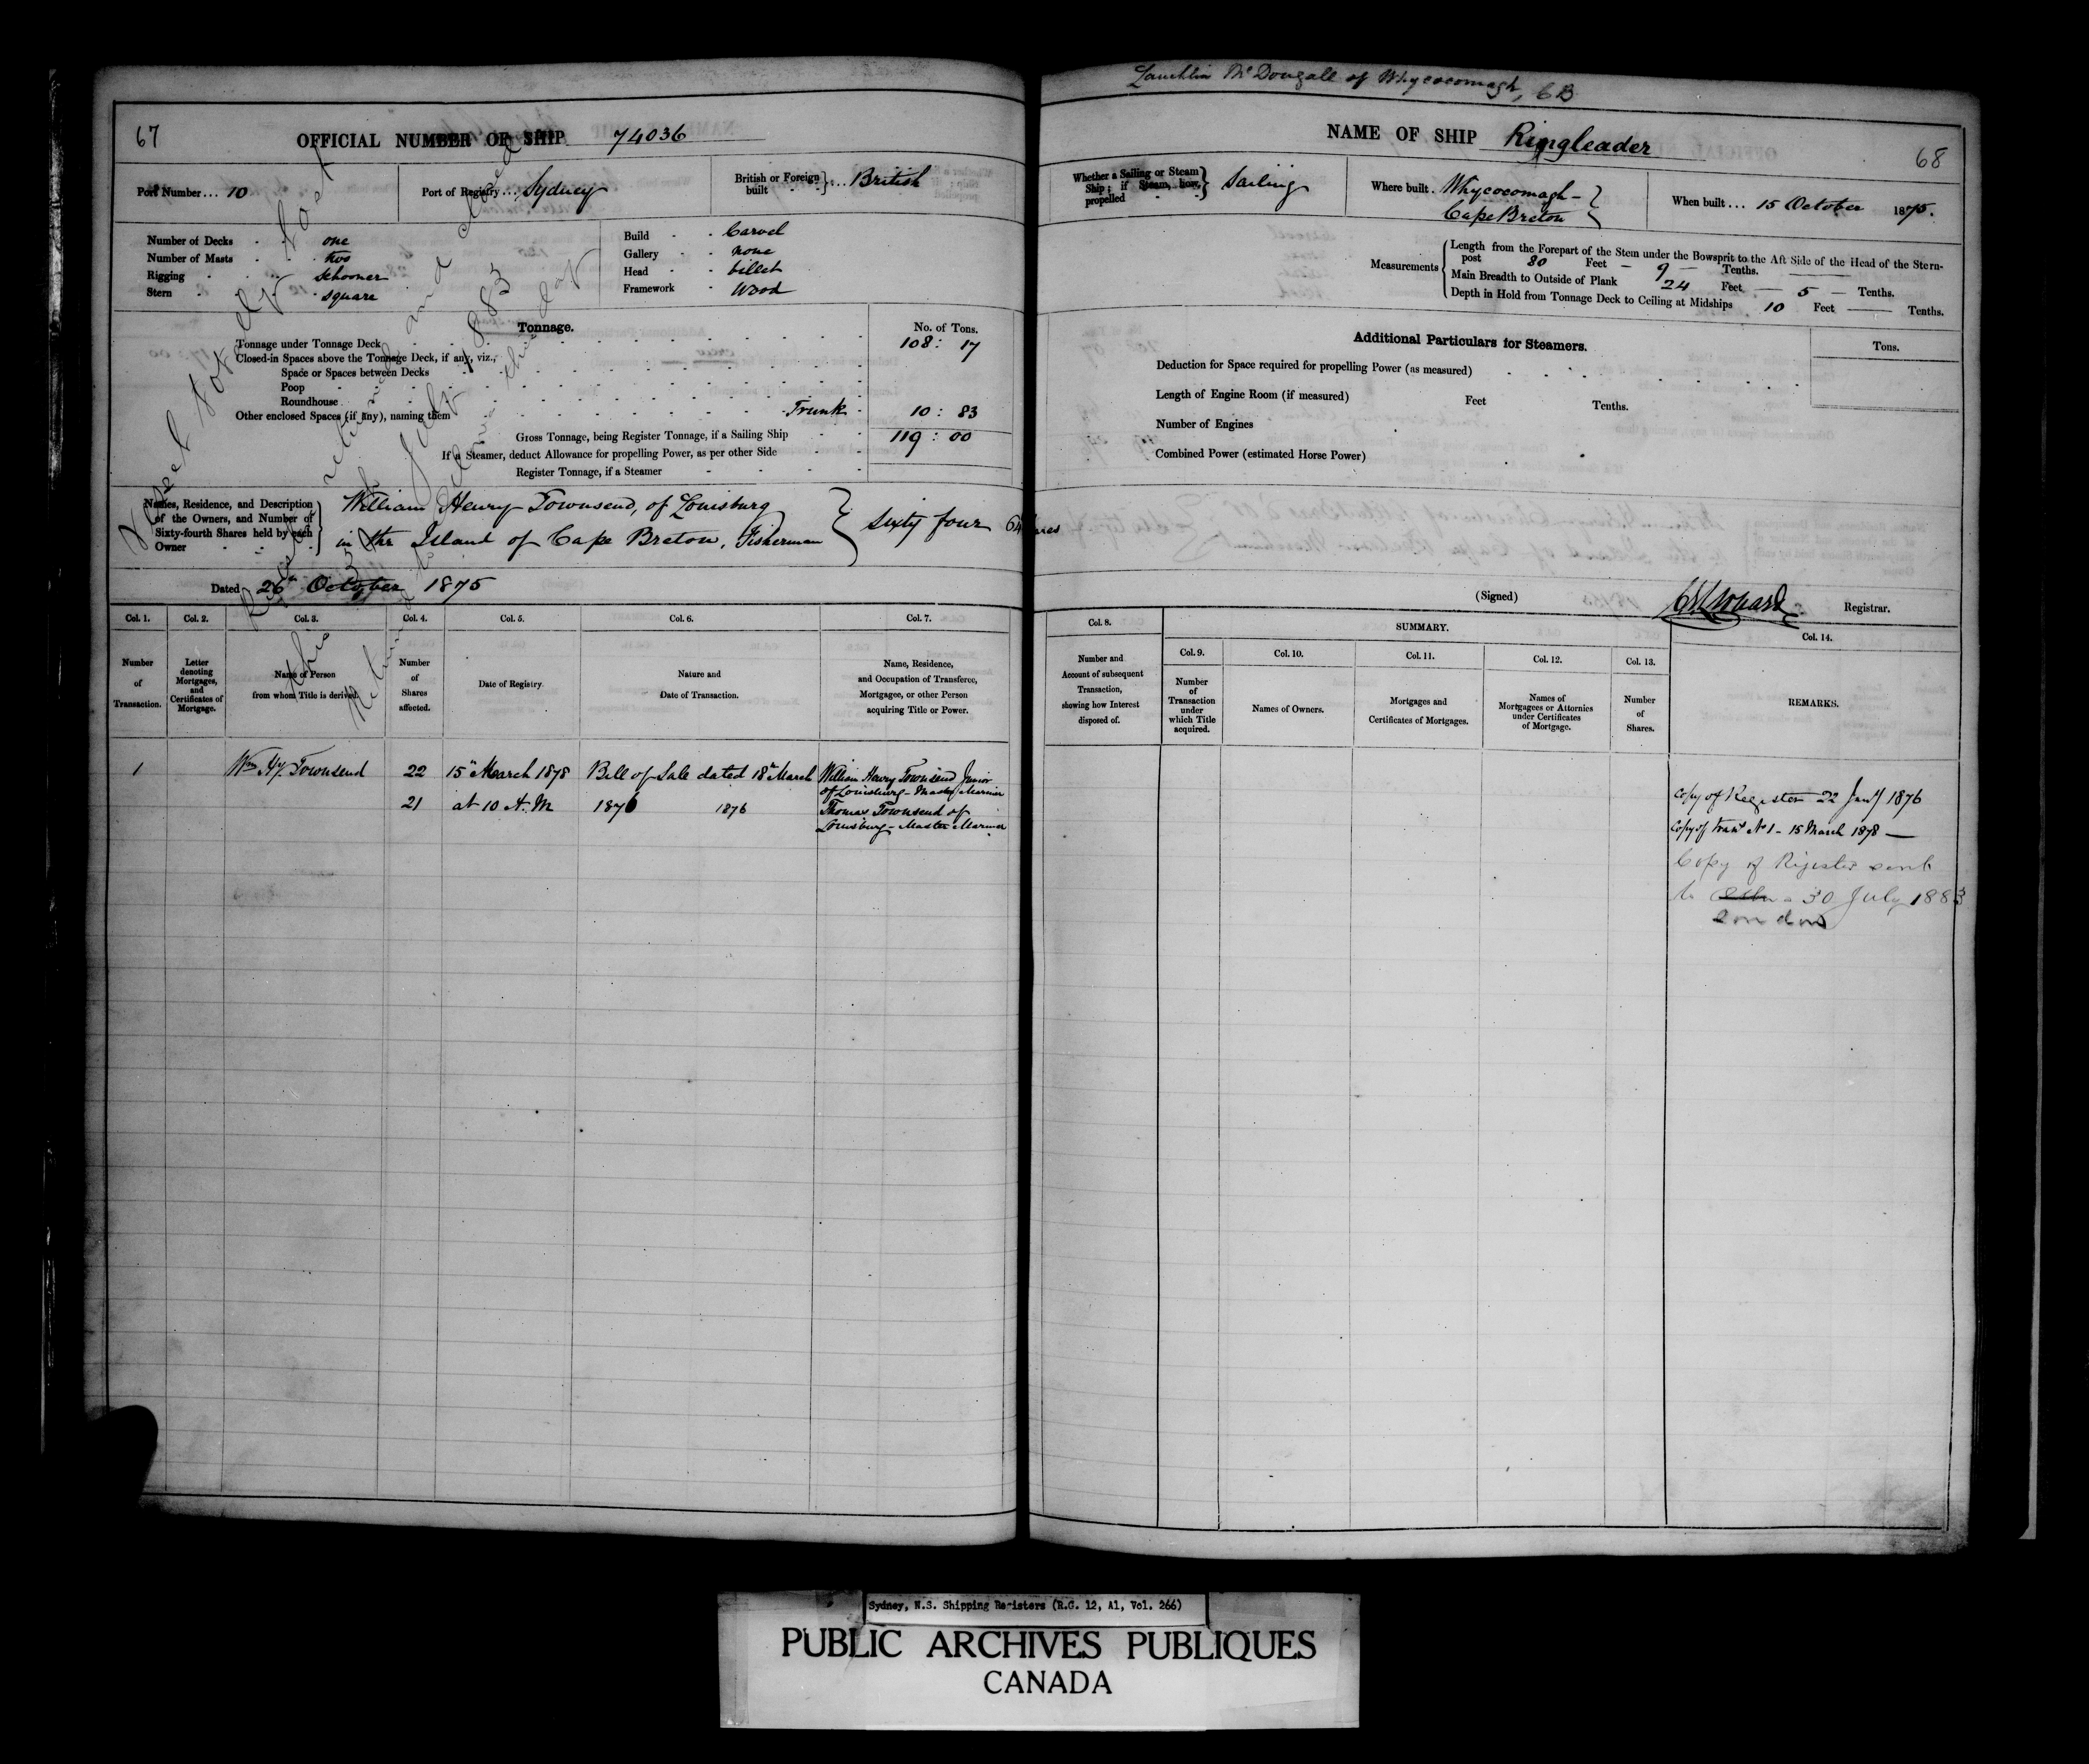 67
OFFICIAL NUMBER OF SHIP 74036
Port Number... 10
Port of Registry... Sydney
British or Foreign built } ... British
Number of Decks - one
Number of Masts - two
Rigging - schooner
Stern - square
Build - Carvel
Gallery - none
Head - billet
Framework - Wood
Tonnage.
No. of Tons.
Tonnage under Tonnage Deck 108 : 17
Closed-in Spaces above the Tonnage Deck, if any, viz.,
Space or Spaces between Decks
Poop
Roundhouse
Other enclosed Spaces (if any), naming them Trunk - 10 : 83
Gross Tonnage, being Register Tonnage, if a Sailing Ship 119 : 00
If a Steamer, deduct Allowance for propelling Power, as per other Side
Register Tonnage, if a Steamer
Names, Residence, and Description of the Owners, and Number of Sixty-fourth Shares held by each Owner
William Henry Townsend, of Louisburg
in the Island of Cape Breton, Fisherman } Sixty four 64 shares
Dated 26th October 1875
Vessel totally lost
Register and closed
this July 1883
this day
Col. 1. Col. 2. Col. 3. Col. 4. Col. 5. Col. 6. Col. 7.
Number of Transaction.
Letter denoting Mortgages, and Certificates of Mortgage.
Name of Person from whom Title is derived.
Number of Shares affected.
Date of Registry.
Nature and Date of Transaction.
Name, Residence, and Occupation of Transferee, Mortgagee, or other Person acquiring Title or Power.
1 Wm Hy. Townsend 22 15th March 1878 Bill of Sale dated 18th March William Henry Townsend Junior
of Louisburg - Master Mariner
21 at 10 A.M 1876 1876 Thomas Townsend of
Louisburg - Master Mariner
Lauchlin McDougall of Whycocomagh, CB
NAME OF SHIP Ringleader
68
Whether a Sailing or Steam Ship; if Steam, how propelled } Sailing
Where built. Whycocomagh - Cape Breton }
When built... 15 October 1875.
Measurements
Length from the Forepart of the Stem under the Bowsprit to the Aft Side of the Head of the Stern-
post 80 Feet - 9 - Tenths.
Main Breadth to Outside of Plank 24 Feet - 5 - Tenths.
Depth in Hold from Tonnage Deck to Ceiling at Midships 10 Feet - Tenths.
Additional Particulars for Steamers.
Tons.
Deduction for Space required for propelling Power (as measured)
Length of Engine Room (if measured) Feet Tenths.
Number of Engines
Combined Power (estimated Horse Power)
(Signed) Registrar.
Col. 8.
SUMMARY.
Col. 14.
Col. 9. Col. 10. Col. 11. Col. 12. Col. 13.
Number and Account of subsequent Transaction, showing how Interest disposed of.
Number of Transaction under which Title acquired.
Names of Owners.
Mortgages and Certificates of Mortgages.
Names of Mortgagees or Attornies under Certificates of Mortgage.
Number of Shares.
REMARKS.
Copy of Register 22 Jany 1876
Copy of Trant No 1 - 15 March 1878 -
Copy of Register sent
to - 30 July 1883
London
Sydney, N.S. Shipping Registers (R.G. 12, A1, Vol. 266)
PUBLIC ARCHIVES PUBLIQUES
CANADA